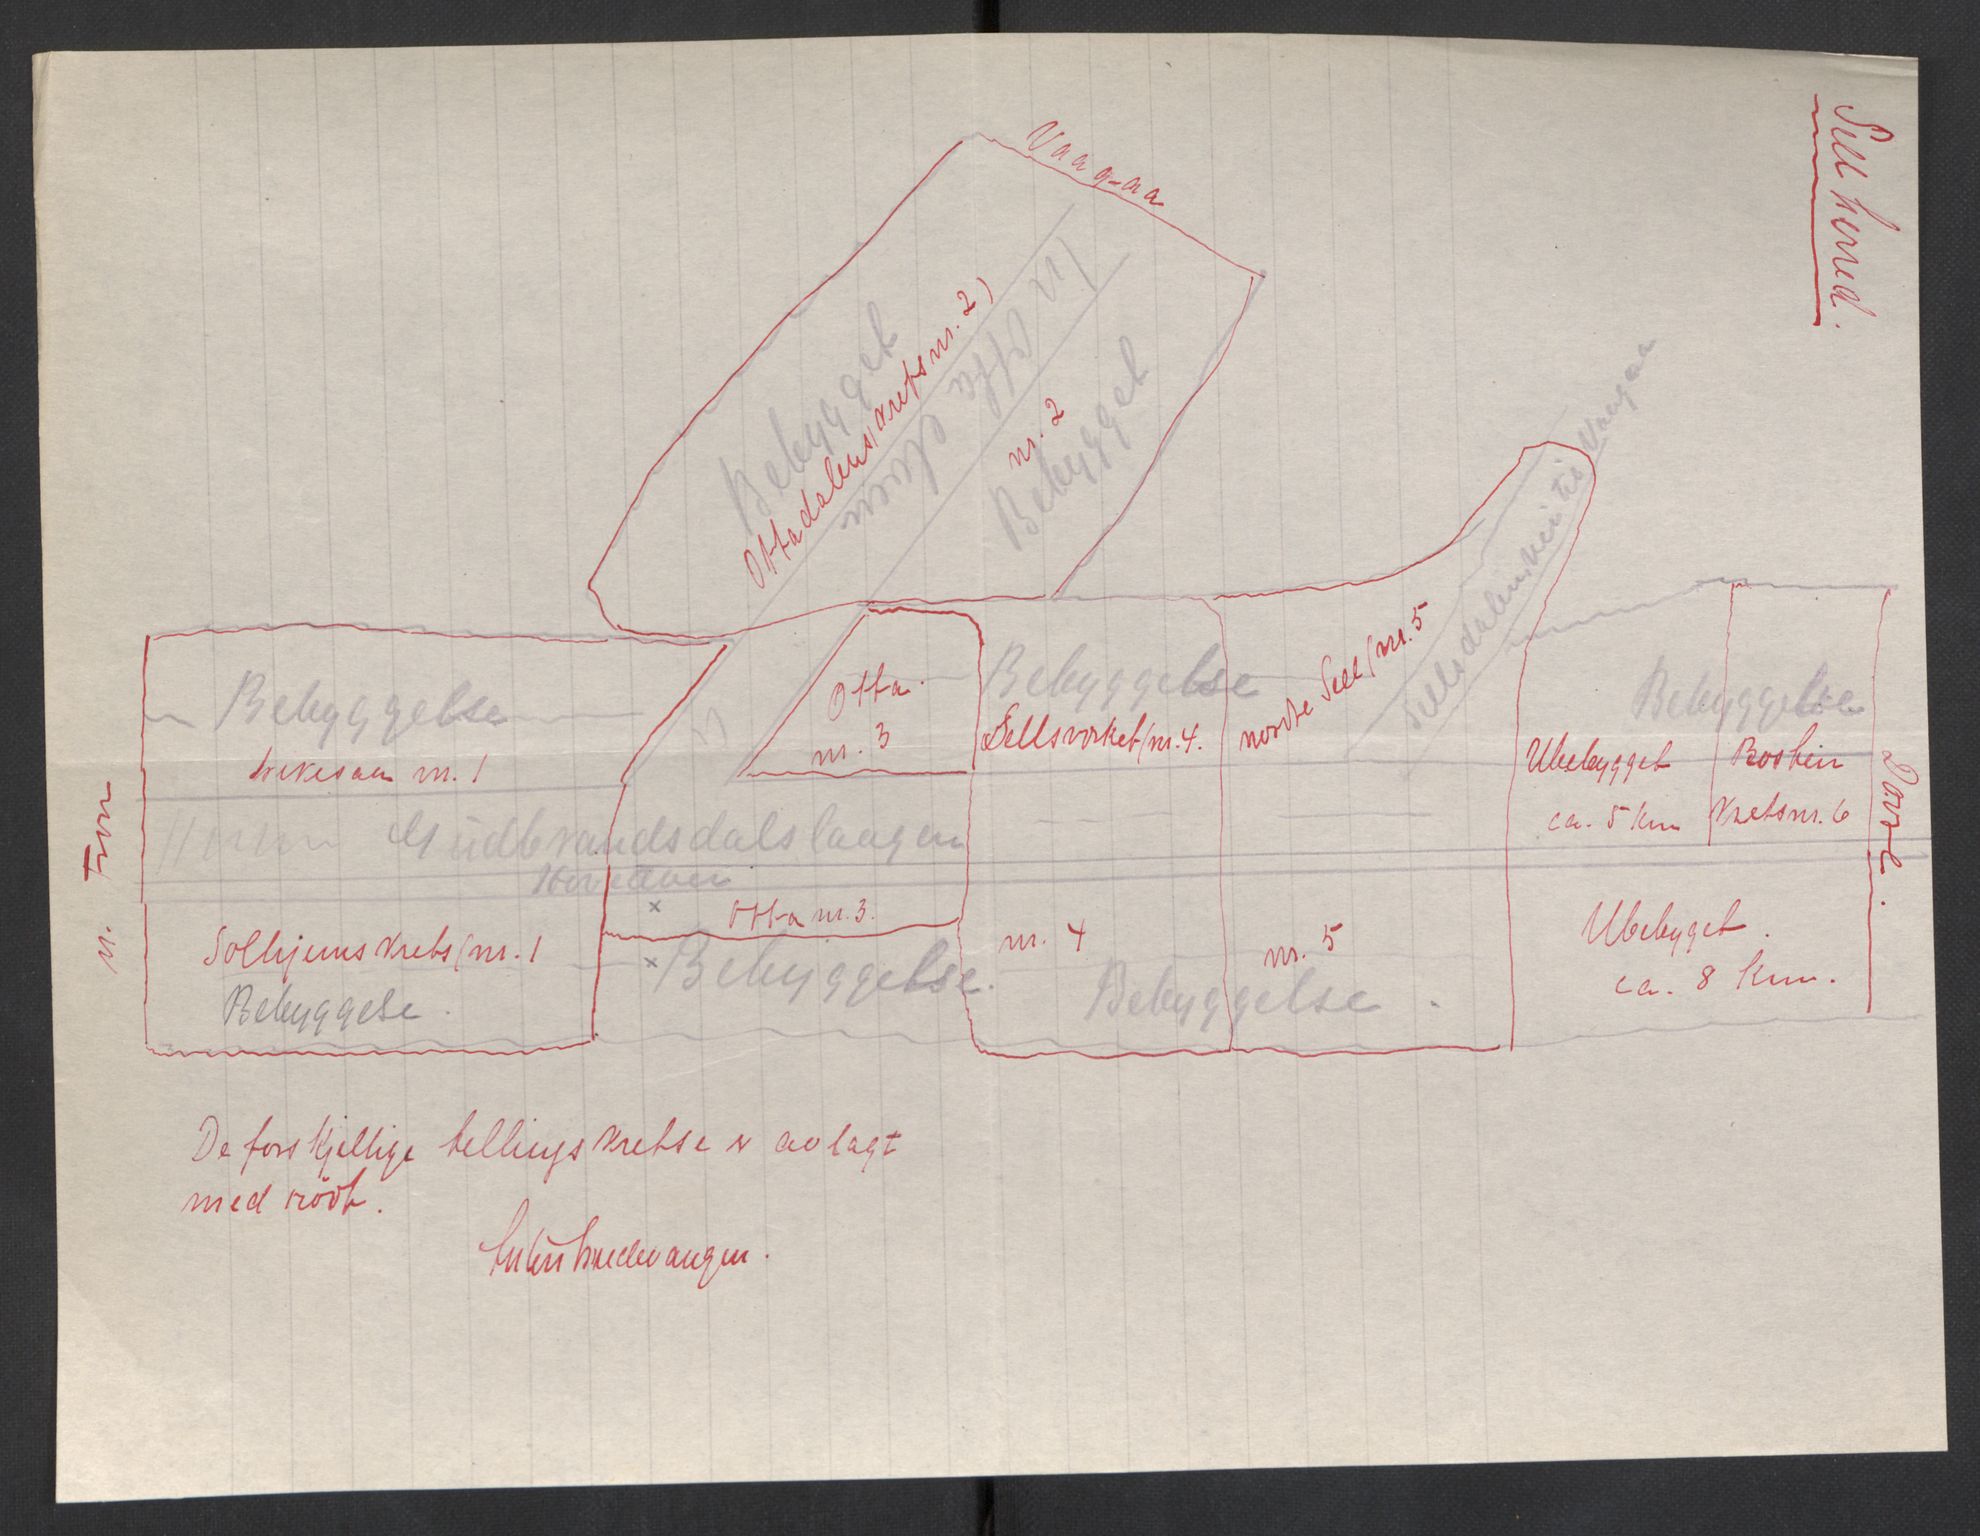 Sell herred.
Vaagaa
Bebygget
Ottadalens (krets nr. 2)
Otta elven
nr. 2
Bebygget
Sellsdalen, vei til Vaagaa
Bebyggelse
nr. 1
Otta.
nr. 3
Bebyggelse
Sellsvorket (nr. 4.
nordre Sell (nr. 5
Bebyggelse
Ubebygget
ca. 5 km
Rosten
Krets nr. 6
Dovre.
n. Fron
Gudbrandsdalslaagen
Hovedvei
x
Otta nr. 3.
Solhjems krets (nr. 1
Bebyggelse.
x Bebyggelse.
nr. 4
nr. 5
Bebyggelse.
Ubebyget.
ca. 8 km.
De forskjellige tellingskretse er avlagt
med rödt.